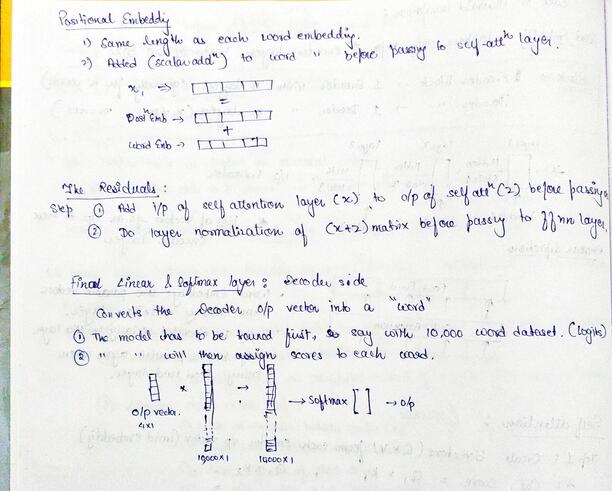 Positional Embeddg
1) Same length as each word embeddig.
2) Added (scalar addⁿ) to word " before passing to self-attⁿ layer.
x₁ ⇒
=
Posⁿ Emb →
+
Word Emb →
The Residuals :
Step ① Add i/p of self attention layer (x) to o/p of self attⁿ (z) before passing
② Do layer normalization of (x+z) matrix before passing to ffnn layer.
Final Linear & Softmax layer : Decoder side
Converts the Decoder o/p vector into a "word"
① The model has to be trained first, say with 10,000 word dataset. (logits)
② " " " will then assign scores to each word.
× → → Softmax [ ] → o/p
o/p vector.
4×1
10000×1 10000×1